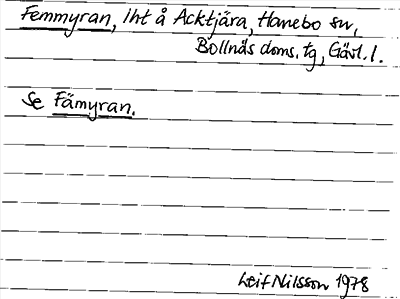 Femmyran, iht å Acktjära, Hanebo sn,
Bollnäs doms. tg, Gävl. l.
Se Fämyran.
Leif Nilsson 1978